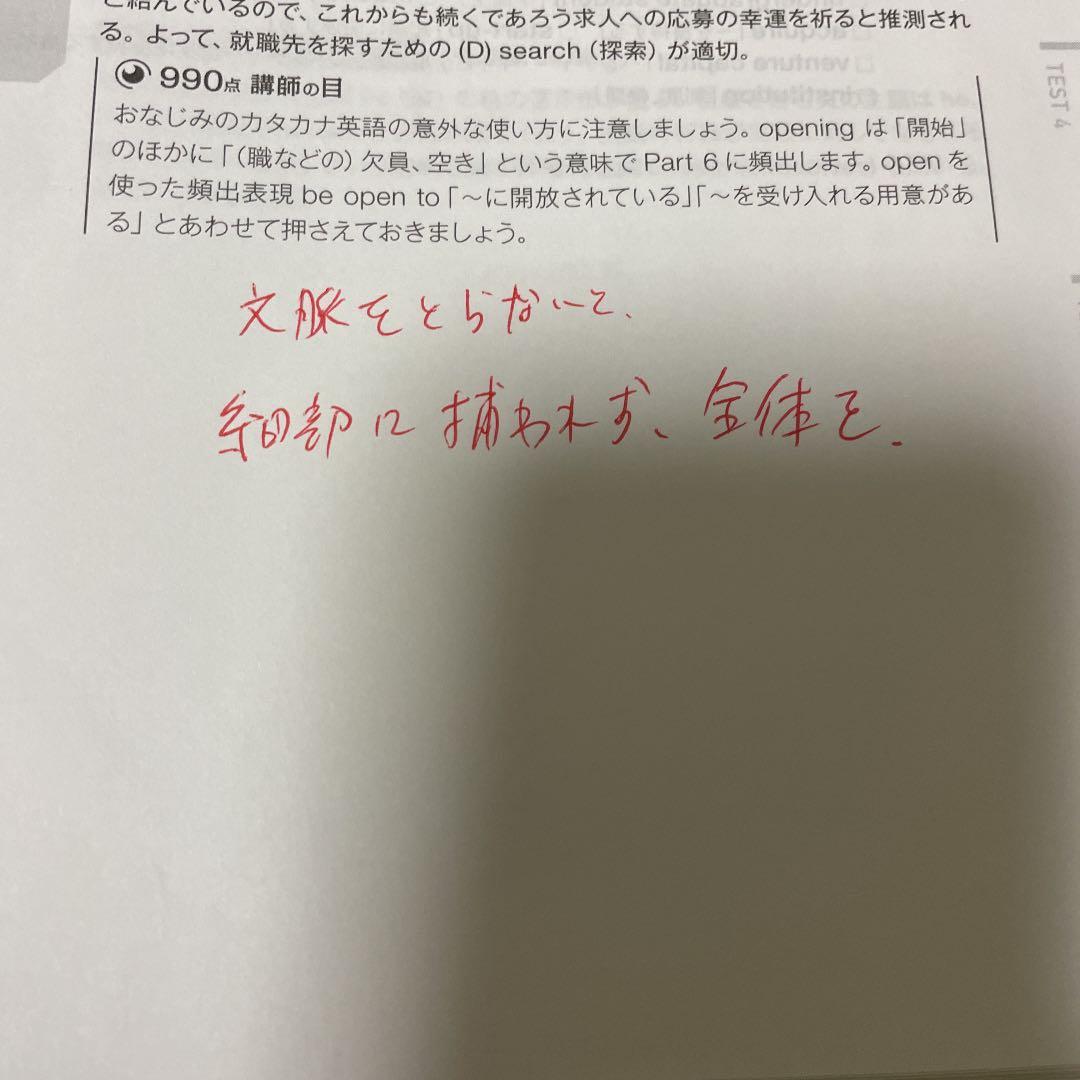 と結んでいるので、これからも続くであろう求人への応募の幸運を祈ると推測され
る。よって、就職先を探すための (D) search (探索) が適切。
990点 講師の目
おなじみのカタカナ英語の意外な使い方に注意しましょう。opening は「開始」
のほかに「(職などの) 欠員、空き」という意味で Part 6 に頻出します。open を
使った頻出表現 be open to「～に開放されている」「～を受け入れる用意があ
る」とあわせて押さえておきましょう。
TEST 4
文脈をとらないと、
細部に捕われず、全体を.